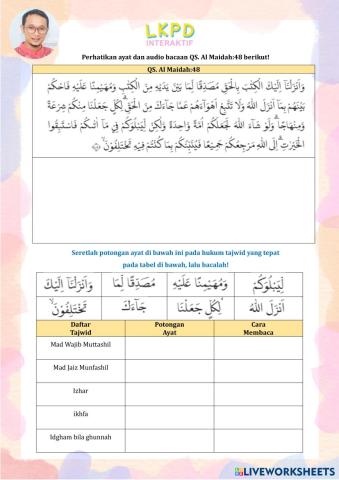 LKPD
INTERAKTIF
Perhatikan ayat dan audio bacaan QS. Al Maidah:48 berikut!
QS. Al Maidah:48
وَاَنْزَلْنَآ اِلَيْكَ الْكِتٰبَ بِالْحَقِّ مُصَدِّقًا لِّمَا بَيْنَ يَدَيْهِ مِنَ الْكِتٰبِ وَمُهَيْمِنًا عَلَيْهِ فَاحْكُمْ
بَيْنَهُمْ بِمَآ اَنْزَلَ اللّٰهُ وَلَا تَتَّبِعْ اَهْوَاۤءَهُمْ عَمَّا جَاۤءَكَ مِنَ الْحَقِّۗ لِكُلٍّ جَعَلْنَا مِنْكُمْ شِرْعَةً
وَّمِنْهَاجًاۗ وَلَوْ شَاۤءَ اللّٰهُ لَجَعَلَكُمْ اُمَّةً وَّاحِدَةً وَّلٰكِنْ لِّيَبْلُوَكُمْ فِيْ مَآ اٰتٰىكُمْ فَاسْتَبِقُوا
الْخَيْرٰتِۗ اِلَى اللّٰهِ مَرْجِعُكُمْ جَمِيْعًا فَيُنَبِّئُكُمْ بِمَا كُنْتُمْ فِيْهِ تَخْتَلِفُوْنَۙ
Seretlah potongan ayat di bawah ini pada hukum tajwid yang tepat
pada tabel di bawah, lalu bacalah!
وَاَنْزَلْنَآ اِلَيْكَ مُصَدِّقًا لِّمَا وَمُهَيْمِنًا عَلَيْهِ لِّيَبْلُوَكُمْ
تَخْتَلِفُوْنَۙ جَاۤءَكَ لِكُلٍّ جَعَلْنَا اَنْزَلَ اللّٰهُ
Daftar Potongan Cara
Tajwid Ayat Membaca
Mad Wajib Muttashil
Mad Jaiz Munfashil
Izhar
ikhfa
Idgham bila ghunnah
LIVEWORKSHEETS